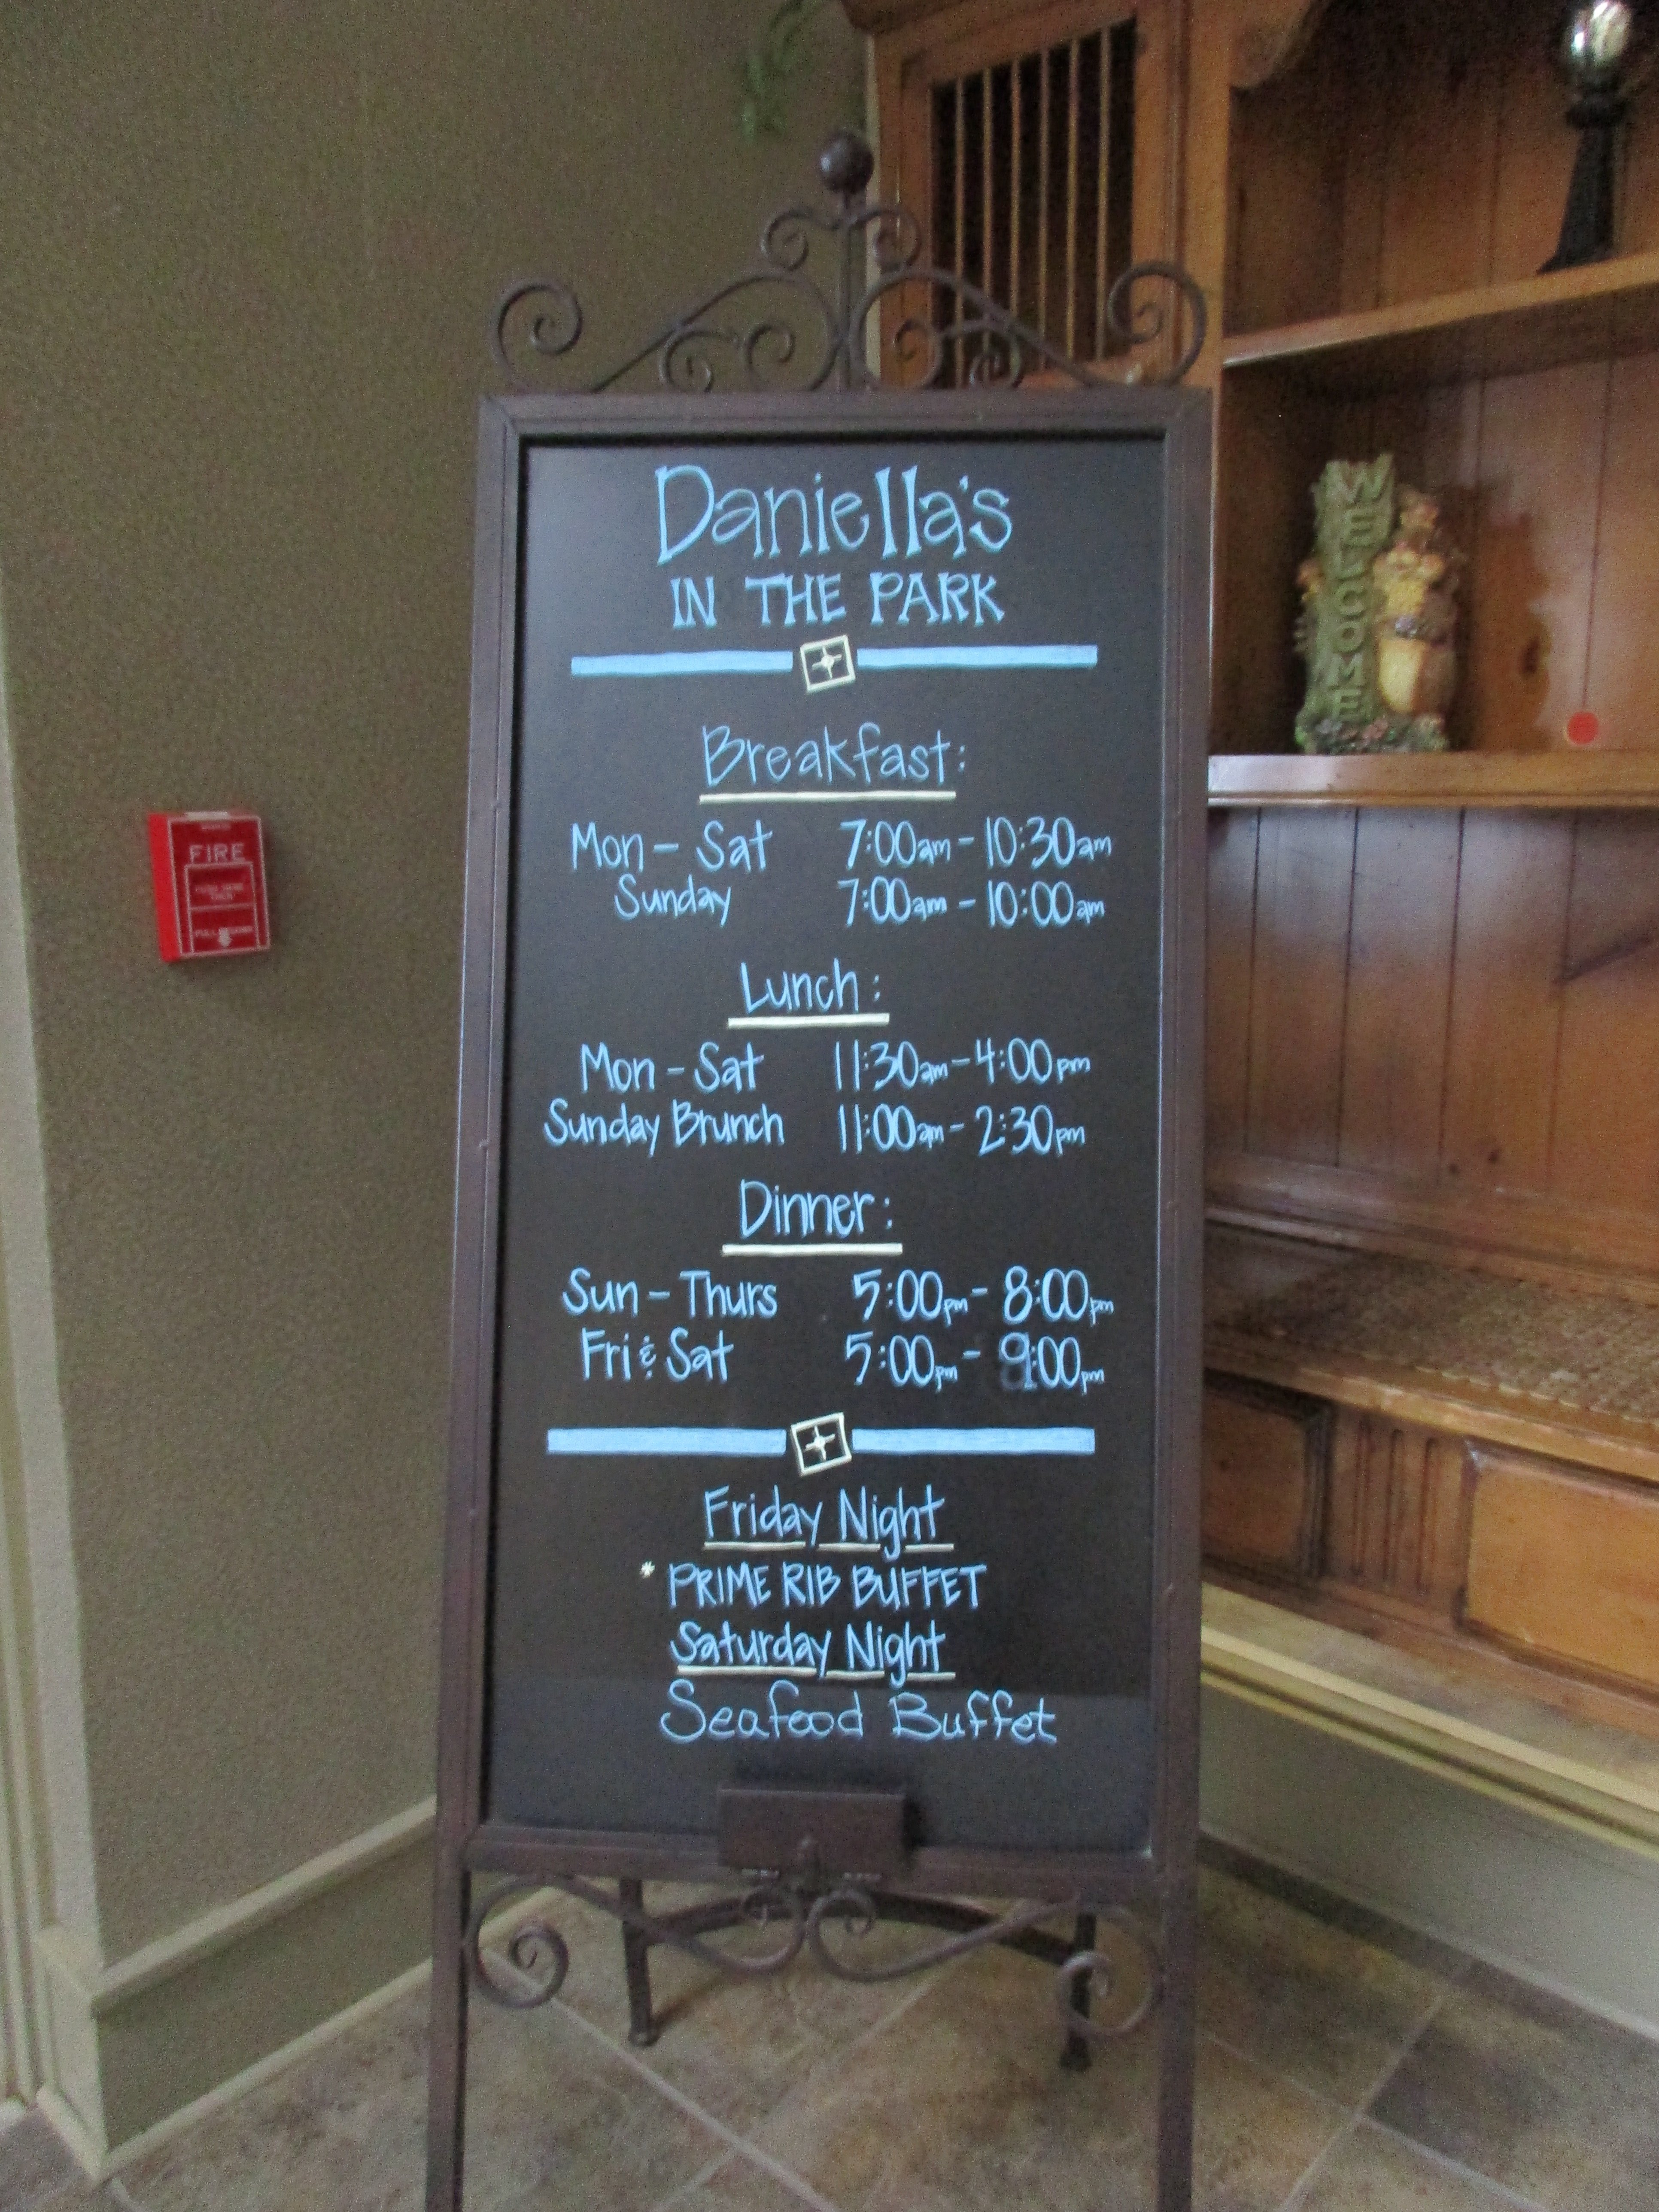 Daniella's
IN THE PARK
Breakfast:
Mon - Sat 7:00am - 10:30am
Sunday 7:00am - 10:00am
Lunch:
Mon - Sat 11:30am - 4:00pm
Sunday Brunch 11:00am - 2:30pm
Dinner:
Sun - Thurs 5:00pm - 8:00pm
Fri & Sat 5:00pm - 9:00pm
Friday Night
* PRIME RIB BUFFET
Saturday Night
Seafood Buffet
FIRE
WELCOME